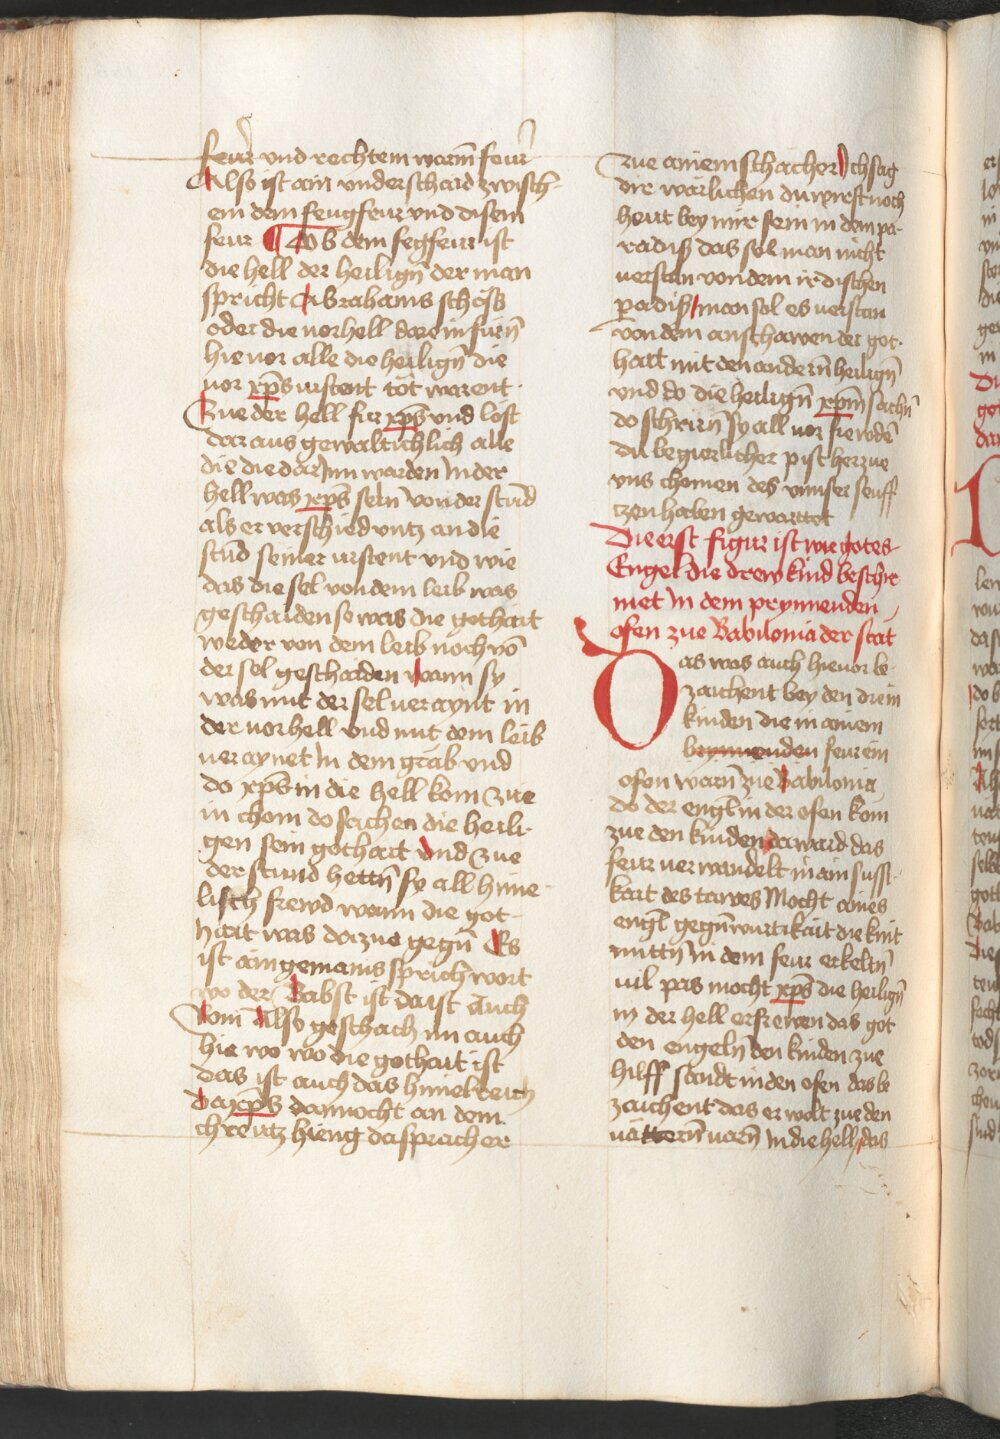 feur vnd rechtem warm̄ feur
Also ist ain vnderschaid zwisch-
en dem feugfeur vnd disem
feur ¶ Ob dem fegfeur ist
die hell der heilign̄ der man
spricht Abrahams schoss
oder die vorhell dar ein furn̄
hie vor alle die heilign̄ die
vor xp̄s vrstent tot warent.
Zue der hell fur xp̄s vnd lost
dar aus gewaltichlich alle
die die dar Inn warden In der
hell was xp̄s sein von der stūd
als er verschied vntz an die
stūd seiner vrstent vnd wie
das die sel von dem leib was
geschaiden so was die gothait
weder von dem leib noch vō
der sel geschaiden wann sy
was mit der sel veraynt in
der vorhell vnd mit dem leib
veraynet In dem grab vnd
do xp̄s in die hell kom zue
in chom do sachen die heili-
gen sein gothait vnd zue
der stund hettn̄ sy all hime-
lisch frewd wann die got-
hait was da zue gegn̄ Es
ist ain gemains sprichwort
wo der Babst ist da ist Auch
Rom Also geschach im auch
hie wo wo die gothait ist
das ist auch das himelreich
Da xp̄s dannocht an dem
chreutz hieng da sprach er
zue ainem schacher Ich sag
dir warlichen du wirst noch
heut bey mir sein in dem pa-
radiß das sol man nicht
verstan von dem irdischen
padiß man sol es verstan
von dem anschawen der got-
hait mit den andern̄ heilign̄
vnd do die heilign̄ xp̄m sachn̄
do schrirn̄ sy all vor frewdē
du begirlicher pist her zue
vns chomen des vnnser seuff
tzen haben gewarttot
Die erst figur ist wie gotes
Engel die drew kind beschir
met In dem prynnenden
ofen zue Babilonia der stat
Das was auch hie vor be-
zaichent bey den drein
kinden die in ainem
brynnenden feurein
ofen warn̄ zue Babilonia
do der engl in der ofen kom
zue den kinden da ward das
feur verwandelt in ain sussi-
kait des tawes Mocht aines
engl gegn̄wurtikait die kint
mittn̄ in dem feur erkeltn̄
vil pas mocht xp̄s die heilign̄
in der hell erfrewen das got
den engeln̄ den kinden zue
hilff sandt in den ofen das be
zaichent das er wolt zue den
vättern̄ varn̄ In die hell, das